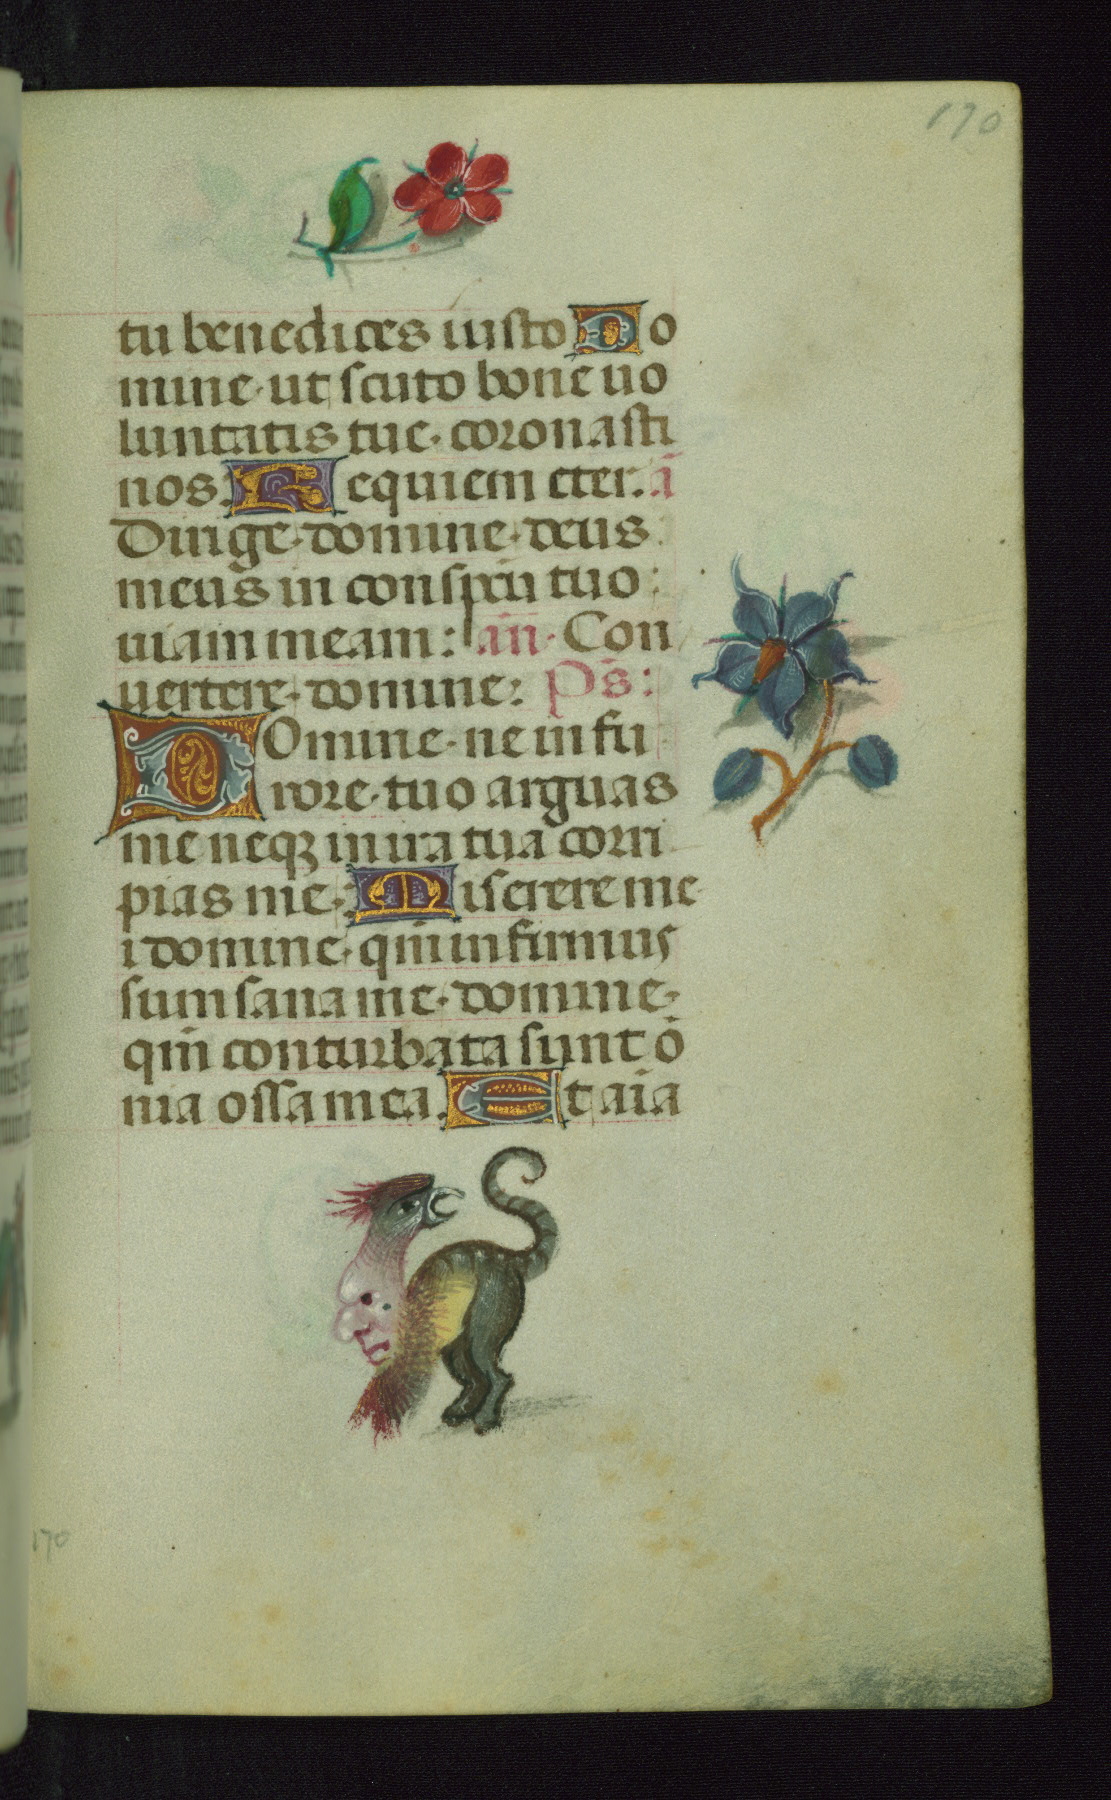 170
tu benedices iusto Do
mine · ut scuto bone uo
luntatis tue · coronasti
nos : Requiem eter. ā
Dirige · domine · deus
meus in conspectu tuo :
uiam meam : añ · Con
uertere · domine : Ps̄ :
DOmine · ne in fu
rore · tuo arguas
me neqꝫ in ira tua corri
pias me : Miserere me
i domine · qm̄ infirmus
sum sana me · domine ·
qm̄ conturbata sunt ō
nia ossa mea . Et aīa
170